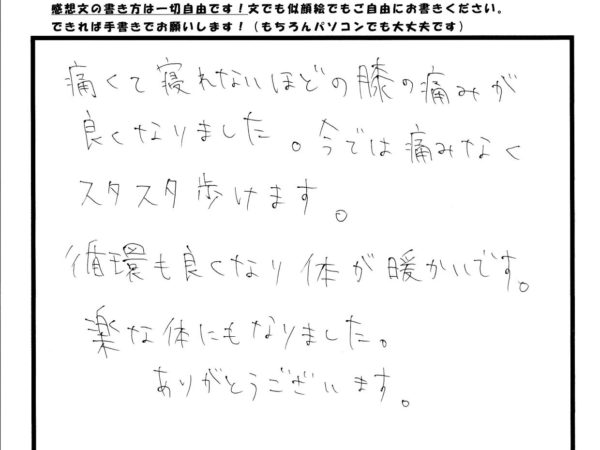 感想文の書き方は一切自由です！文でも似顔絵でもご自由にお書きください。
できれば手書きでお願いします！（もちろんパソコンでも大丈夫です）
痛くて寝れないほどの膝の痛みが
良くなりました。今では痛みなく
スタスタ歩けます。
循環も良くなり体が暖かいです。
楽な体にもなりました。
ありがとうございます。